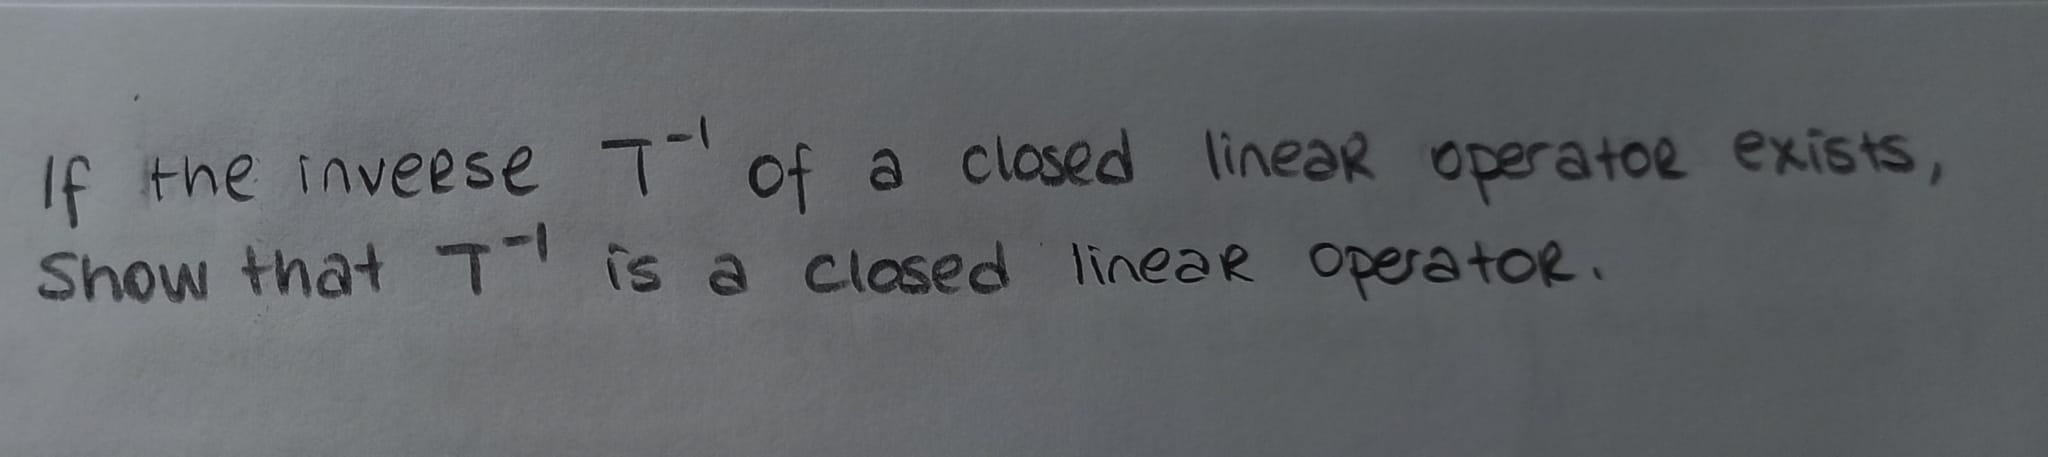 If the inverse T⁻¹ of a closed linear operator exists,
Show that T⁻¹ is a closed linear operator.